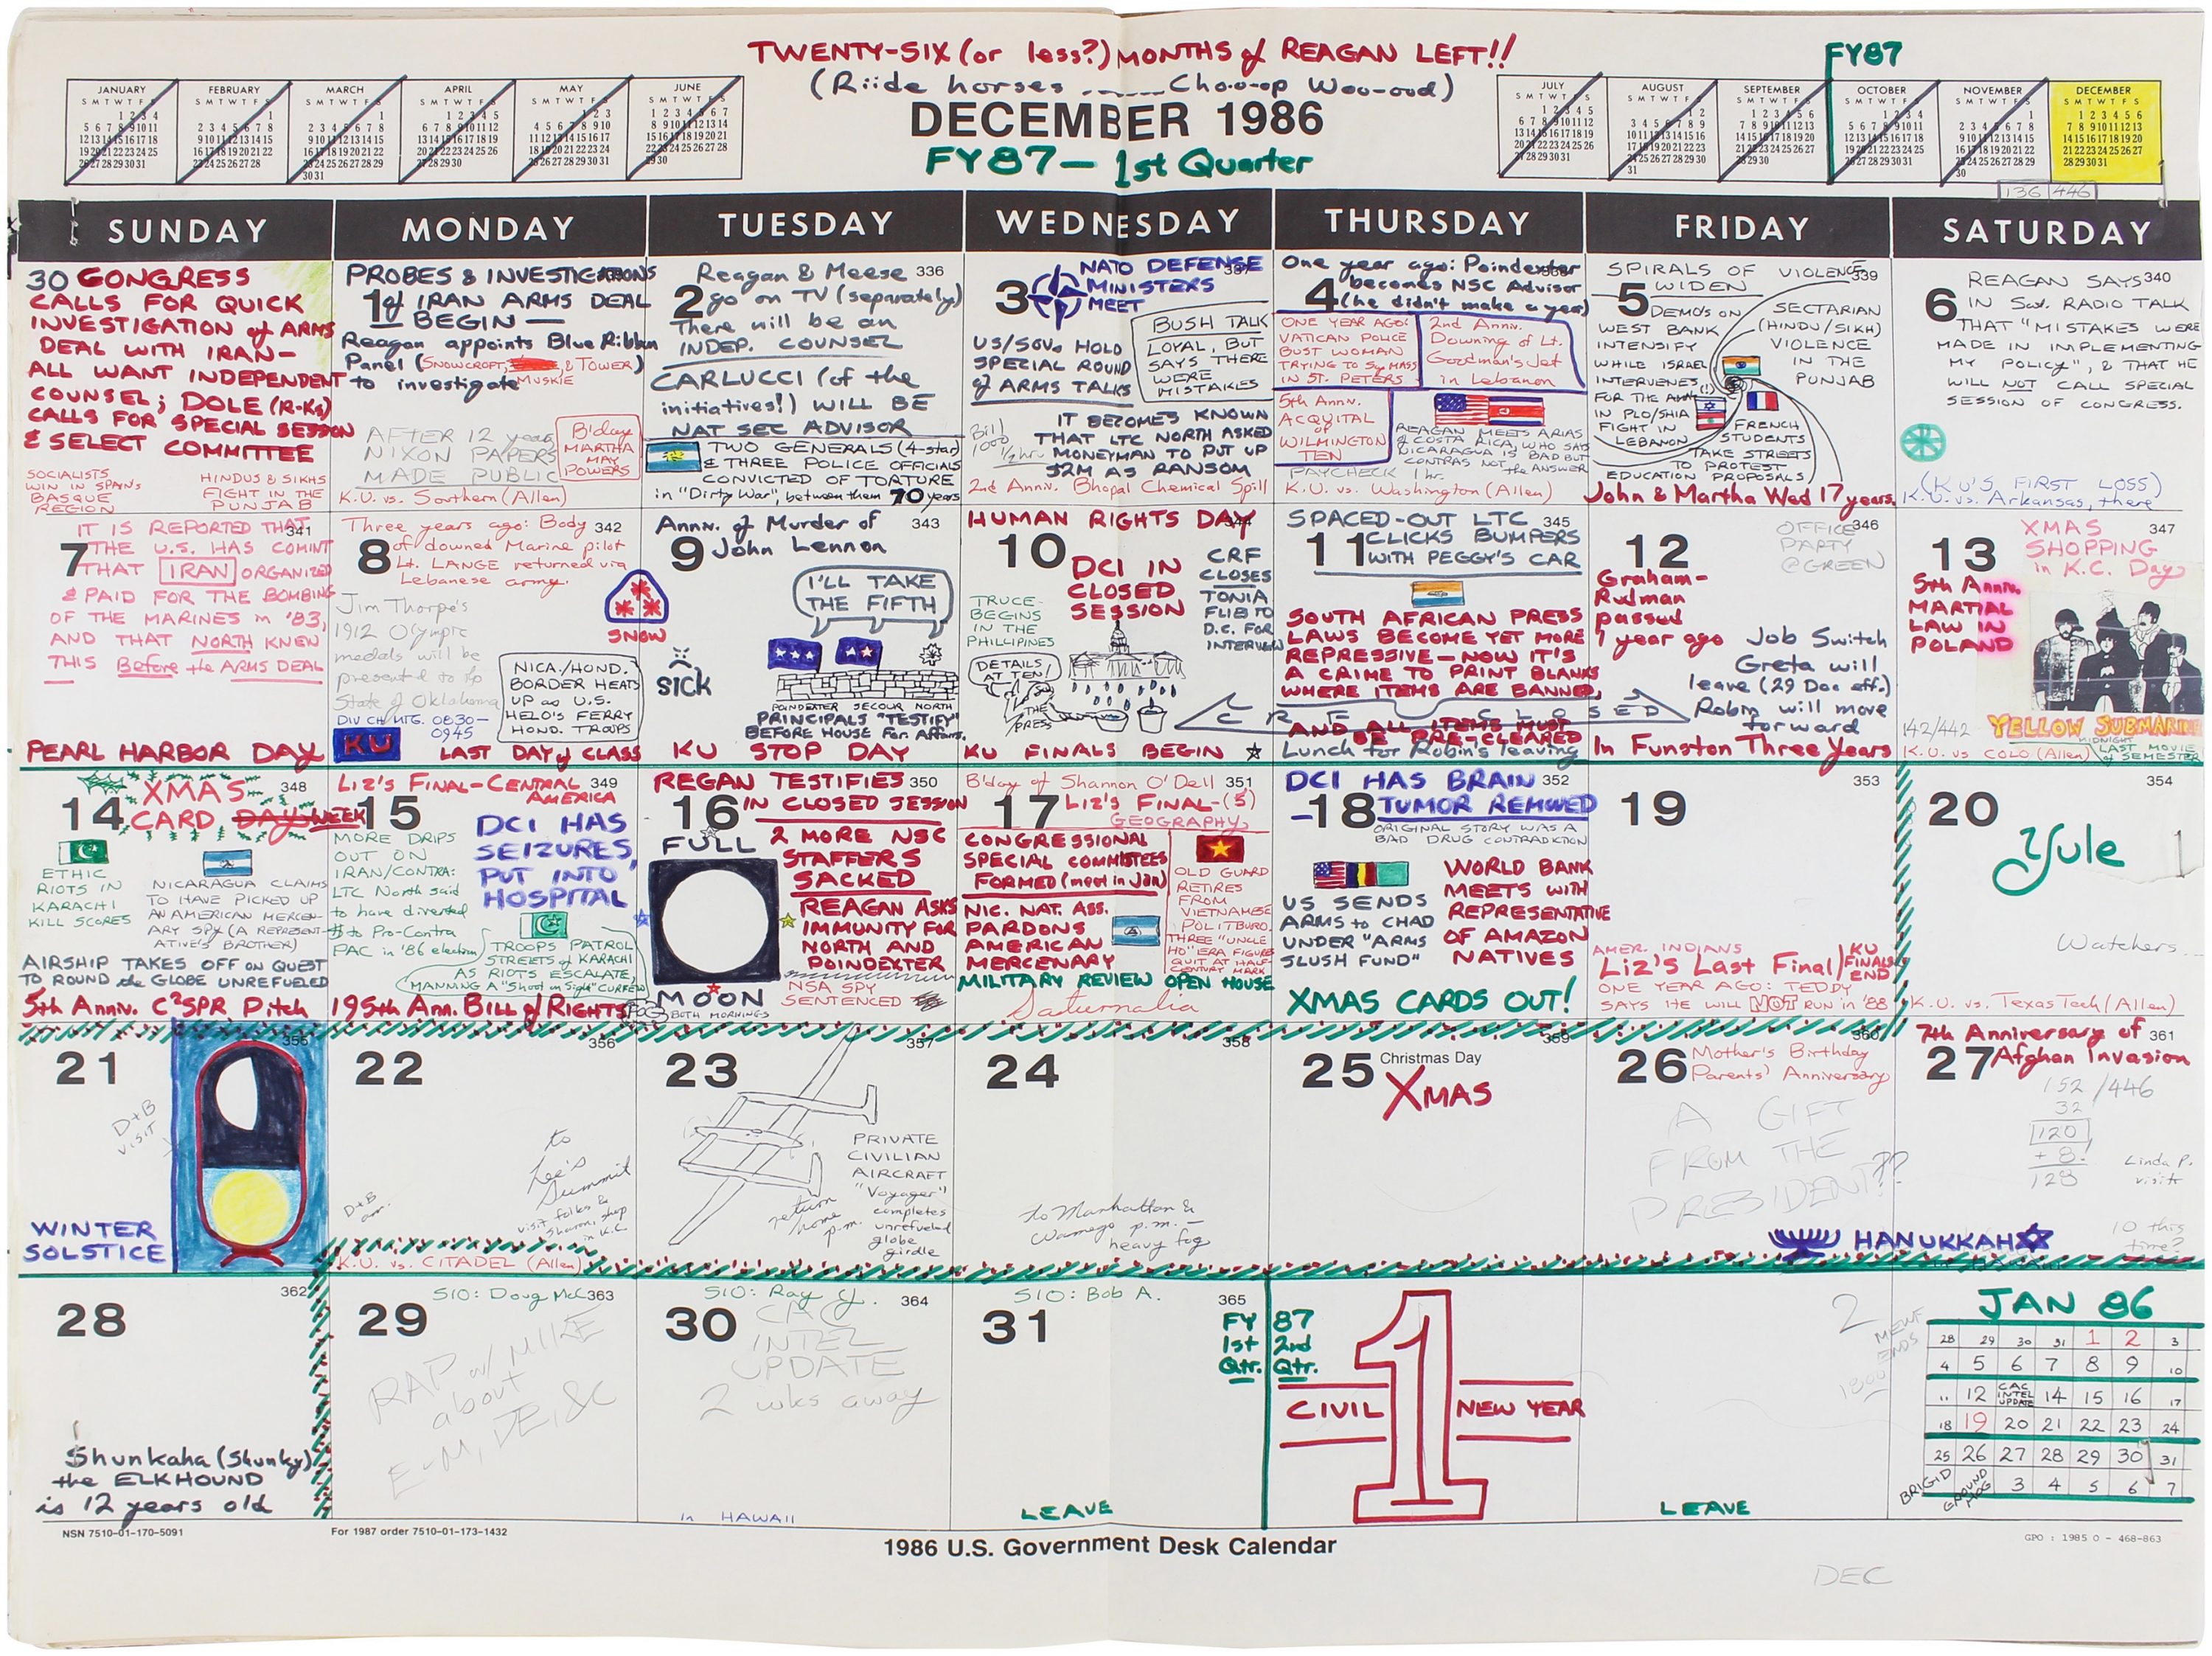 TWENTY-SIX (or less?) MONTHS of REAGAN LEFT!!
(Riide horses ........ Cho-o-op Woo-ood)
DECEMBER 1986
FY87 — 1st Quarter
FY87
JANUARY
S M T W T F S
1 2 3 4
5 6 7 8 9 10 11
12 13 14 15 16 17 18
19 20 21 22 23 24 25
26 27 28 29 30 31
FEBRUARY
S M T W T F S
1
2 3 4 5 6 7 8
9 10 11 12 13 14 15
16 17 18 19 20 21 22
23 24 25 26 27 28
MARCH
S M T W T F S
1
2 3 4 5 6 7 8
9 10 11 12 13 14 15
16 17 18 19 20 21 22
23 24 25 26 27 28 29
30 31
APRIL
S M T W T F S
1 2 3 4 5
6 7 8 9 10 11 12
13 14 15 16 17 18 19
20 21 22 23 24 25 26
27 28 29 30
MAY
S M T W T F S
1 2 3
4 5 6 7 8 9 10
11 12 13 14 15 16 17
18 19 20 21 22 23 24
25 26 27 28 29 30 31
JUNE
S M T W T F S
1 2 3 4 5 6 7
8 9 10 11 12 13 14
15 16 17 18 19 20 21
22 23 24 25 26 27 28
29 30
JULY
S M T W T F S
1 2 3 4 5
6 7 8 9 10 11 12
13 14 15 16 17 18 19
20 21 22 23 24 25 26
27 28 29 30 31
AUGUST
S M T W T F S
1 2
3 4 5 6 7 8 9
10 11 12 13 14 15 16
17 18 19 20 21 22 23
24 25 26 27 28 29 30
31
SEPTEMBER
S M T W T F S
1 2 3 4 5 6
7 8 9 10 11 12 13
14 15 16 17 18 19 20
21 22 23 24 25 26 27
28 29 30
OCTOBER
S M T W T F S
1 2 3 4
5 6 7 8 9 10 11
12 13 14 15 16 17 18
19 20 21 22 23 24 25
26 27 28 29 30 31
NOVEMBER
S M T W T F S
1
2 3 4 5 6 7 8
9 10 11 12 13 14 15
16 17 18 19 20 21 22
23 24 25 26 27 28 29
30
DECEMBER
S M T W T F S
1 2 3 4 5 6
7 8 9 10 11 12 13
14 15 16 17 18 19 20
21 22 23 24 25 26 27
28 29 30 31
136 446
SUNDAY MONDAY TUESDAY WEDNESDAY THURSDAY FRIDAY SATURDAY
30 CONGRESS
CALLS FOR QUICK
INVESTIGATION of ARMS
DEAL WITH IRAN—
ALL WANT INDEPENDENT
COUNSEL; DOLE (R-Ks)
CALLS FOR SPECIAL SESSION
& SELECT COMMITTEE
SOCIALISTS
WIN IN SPAIN'S
BASQUE
REGION
HINDUS & SIKHS
FIGHT IN THE
PUNJAB
PROBES & INVESTIGATIONS
1 of IRAN ARMS DEAL
BEGIN —
Reagan appoints Blue Ribbon
Panel (SNOWCROFT, MUSKIE & TOWER)
to investigate
AFTER 12 years
NIXON PAPERS
MADE PUBLIC
B'day
MARTHA
MAY
POWERS
K.U. vs. Southern (Allen)
Reagan & Meese 336
2 go on TV (separately)
There will be an
INDEP. COUNSEL
CARLUCCI (of the
initiatives!) WILL BE
NAT SEC ADVISOR
TWO GENERALS (4-star)
& THREE POLICE OFFICIALS
CONVICTED OF TORTURE
in "Dirty War", between them 70 years
3 NATO DEFENSE
MINISTERS
MEET
US/SOVs HOLD
SPECIAL ROUND
of ARMS TALKS
BUSH TALK
LOYAL, BUT
SAYS THERE
WERE
MISTAKES
Bill
1000
1/2 hr
IT BECOMES KNOWN
THAT LTC NORTH ASKED
MONEYMAN TO PUT UP
$2M AS RANSOM
2nd Anniv. Bhopal Chemical Spill
One year ago: Poindexter
4 becomes NSC Advisor
(he didn't make a year)
ONE YEAR AGO:
VATICAN POLICE
BUST WOMAN
TRYING TO Say MASS
IN ST. PETERS
2nd Anniv.
Downing of Lt.
Goodman's Jet
in Lebanon
5th Anniv.
ACQUITAL
of
WILMINGTON
TEN
REAGAN MEETS ARIAS
of COSTA RICA, WHO SAYS
NICARAGUA IS BAD BUT
CONTRAS NOT the ANSWER
PAYCHECK 1 hr.
K.U. vs. Washington (Allen)
SPIRALS OF VIOLENCE 339
WIDEN
5 DEMO'S ON
WEST BANK
INTENSIFY
WHILE ISRAEL
INTERVENES (!)
FOR THE
IN PLO/SHIA
FIGHT IN
LEBANON
SECTARIAN
(HINDU/SIKH)
VIOLENCE
IN THE
PUNJAB
FRENCH
STUDENTS
TAKE STREETS
TO PROTEST
EDUCATION PROPOSALS
John & Martha Wed 17 years
REAGAN SAYS 340
6 IN Sat. RADIO TALK
THAT "MISTAKES WERE
MADE IN IMPLEMENTING
MY POLICY", & THAT HE
WILL NOT CALL SPECIAL
SESSION OF CONGRESS.
(KU'S FIRST LOSS)
K.U. vs. Arkansas, there
IT IS REPORTED THAT 341
7 THE U.S. HAS COMINT
THAT IRAN ORGANIZED
& PAID FOR THE BOMBING
OF THE MARINES in '83,
AND THAT NORTH KNEW
THIS Before the ARMS DEAL
PEARL HARBOR DAY
Three years ago: Body 342
8 of downed Marine pilot
Lt. LANGE returned via
Lebanese army.
Jim Thorpe's
1912 Olympic
medals will be
presented to
State of Oklahoma
SNOW
NICA./HOND.
BORDER HEATS
UP as U.S.
HELO'S FERRY
HOND. TROOPS
DIV CH MTG. 0830–
0945
KU LAST DAY of CLASS
Anniv. of Murder of 343
9 John Lennon
I'LL TAKE
THE FIFTH
SICK
POINDEXTER SECOUR NORTH
PRINCIPALS "TESTIFY"
BEFORE HOUSE For. Affairs.
KU STOP DAY
HUMAN RIGHTS DAY 344
10 DCI IN
CLOSED
SESSION
CRF
CLOSES
TONIA
FLIB TO
D.C. FOR
INTERVIEW
TRUCE
BEGINS
IN THE
PHILLIPINES
DETAILS
AT TEN!
THE
PRESS
KU FINALS BEGIN
SPACED-OUT LTC 345
11 CLICKS BUMPERS
WITH PEGGY'S CAR
SOUTH AFRICAN PRESS
LAWS BECOME YET MORE
REPRESSIVE — NOW IT'S
A CRIME TO PRINT BLANKS
WHERE ITEMS ARE BANNED,
AND ALL ITEMS MUST
BE PRE-CLEARED
CRF CLOSED
Lunch for Robin's leaving
OFFICE 346
PARTY
@ GREEN
12
Graham-
Rudman
passed
1 year ago
Job Switch
Greta will
leave (29 Dec eff.)
Robin will move
forward
In Funston Three Years
XMAS 347
13 SHOPPING
in K.C. Day
5th Anniv.
MARTIAL
LAW IN
POLAND
142/442
YELLOW SUBMARINE
MIDNIGHT
LAST MOVIE
of SEMESTER
K.U. vs COLO (Allen)
XMAS 348
14 CARD DAY WEEK
ETHIC
RIOTS IN
KARACHI
KILL SCORES
NICARAGUA CLAIMS
TO HAVE PICKED UP
AN AMERICAN MERCEN-
ARY SPY (A REPRESENT-
ATIVE'S BROTHER)
AIRSHIP TAKES OFF ON QUEST
TO ROUND the GLOBE UNREFUELED
5th Anniv. C²SPR Pitch
Liz's FINAL - CENTRAL 349
AMERICA
15
MORE DRIPS
OUT ON
IRAN/CONTRA:
LTC North said
to have diverted
$ to Pro-Contra
PAC in '86 election
DCI HAS
SEIZURES,
PUT INTO
HOSPITAL
TROOPS PATROL
STREETS of KARACHI
AS RIOTS ESCALATE,
MANNING A "Shoot on Sight" CURFEW
195th Ann. Bill of Rights
FOG BOTH MORNINGS
REGAN TESTIFIES 350
16 IN CLOSED SESSION
FULL
MOON
2 MORE NSC
STAFFERS
SACKED
REAGAN ASKS
IMMUNITY FOR
NORTH AND
POINDEXTER
NSA SPY
SENTENCED
B'day of Shannon O'Dell 351
17 Liz's FINAL-(5)
GEOGRAPHY
CONGRESSIONAL
SPECIAL COMMITTEES
FORMED (meet in Jan)
NIC. NAT. ASS.
PARDONS
AMERICAN
MERCENARY
OLD GUARD
RETIRES
FROM
VIETNAMESE
POLITBURO.
THREE "UNCLE
HO" ERA FIGURES
QUIT AT HALF-
CENTURY MARK
MILITARY REVIEW OPEN HOUSE
Saturnalia
DCI HAS BRAIN 352
18 TUMOR REMOVED
ORIGINAL STORY WAS A
BAD DRUG CONTRADICTION
US SENDS
ARMS to CHAD
UNDER "ARMS
SLUSH FUND"
WORLD BANK
MEETS WITH
REPRESENTATIVE
OF AMAZON
NATIVES
XMAS CARDS OUT!
353
19
AMER. INDIANS
Liz's Last Final
KU
FINALS
END
ONE YEAR AGO: TEDDY
SAYS HE WILL NOT RUN in '88
354
20
Yule
Watchers...
K.U. vs. Texas Tech (Allen)
355
21
D+B
visit
WINTER
SOLSTICE
356
22
to
Lee's
Summit
visit folks &
Sharon, shop
in K.C.
D+B
am.
K.U. vs. CITADEL (Allen)
357
23
PRIVATE
CIVILIAN
AIRCRAFT
"Voyager"
completes
unrefueled
globe
girdle
return
home
p.m.
358
24
to Manhattan &
Wamego p.m. —
heavy fog
359
25 Christmas Day
XMAS
360
26 Mother's Birthday
Parents' Anniversary
A GIFT
FROM THE
PRESIDENT??
HANUKKAH
7th Anniversary of 361
27 Afghan Invasion
152/446
32
120
+ 8
128
Linda P.
visit
10 this
time?
362
28
Shunkaha (Shunky)
the ELKHOUND
is 12 years old
S10: Doug McC 363
29
RAP w/ MIKE
about
E-M, DE, &C
S10: Ray J. 364
30 CAC
INTEL
UPDATE
2 wks away
In HAWAII
S10: Bob A. 365
31
LEAVE
FY 87
1st 2nd
Qtr. Qtr.
1
CIVIL NEW YEAR
2
MEWF
ENDS
1800
LEAVE
JAN 86
28 29 30 31 1 2 3
4 5 6 7 8 9 10
11 12 CAC INTEL UPDATE 14 15 16 17
18 19 20 21 22 23 24
25 26 27 28 29 30 31
BRIGID GROUND HOG 3 4 5 6 7
NSN 7510-01-170-5091
For 1987 order 7510-01-173-1432
1986 U.S. Government Desk Calendar
GPO : 1985 O - 468-863
DEC